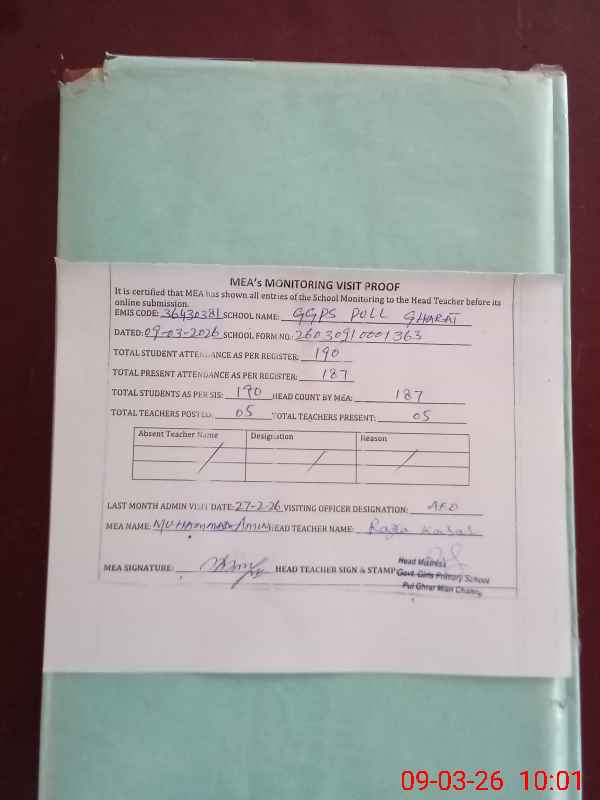 MEA's MONITORING VISIT PROOF
It is certified that MEA has shown all entries of the School Monitoring to the Head Teacher before its
online submission.
EMIS CODE: 36430381 SCHOOL NAME: GGPS PULL GHARAT
DATED: 09-03-2026 SCHOOL FORM NO: 26030910001363
TOTAL STUDENT ATTENDANCE AS PER REGISTER: 190
TOTAL PRESENT ATTENDANCE AS PER REGISTER: 187
TOTAL STUDENTS AS PER SIS: 190 HEAD COUNT BY MEA: 187
TOTAL TEACHERS POSTED: 05 TOTAL TEACHERS PRESENT: 05
Absent Teacher Name Designation Reason
LAST MONTH ADMIN VISIT DATE: 27-2-26 VISITING OFFICER DESIGNATION: AEO
MEA NAME: MUHAMMAD AMIN HEAD TEACHER NAME: Razia
MEA SIGNATURE: HEAD TEACHER SIGN & STAMP:
Head Mistress
Govt. Girls Primary School
Pul Ghrat Mian Channu
09-03-26 10:01